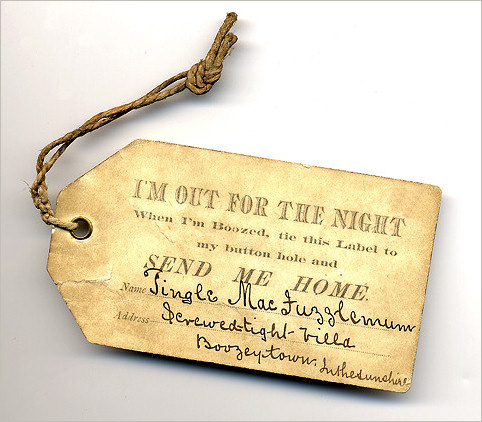 I'M OUT FOR THE NIGHT
When I'm Boozed, tie this Label to
my button hole and
SEND ME HOME.
Name Tingle MacFuzzlemum
Address Screwed-tight-Villa
Boozeytown. Inthesunshire